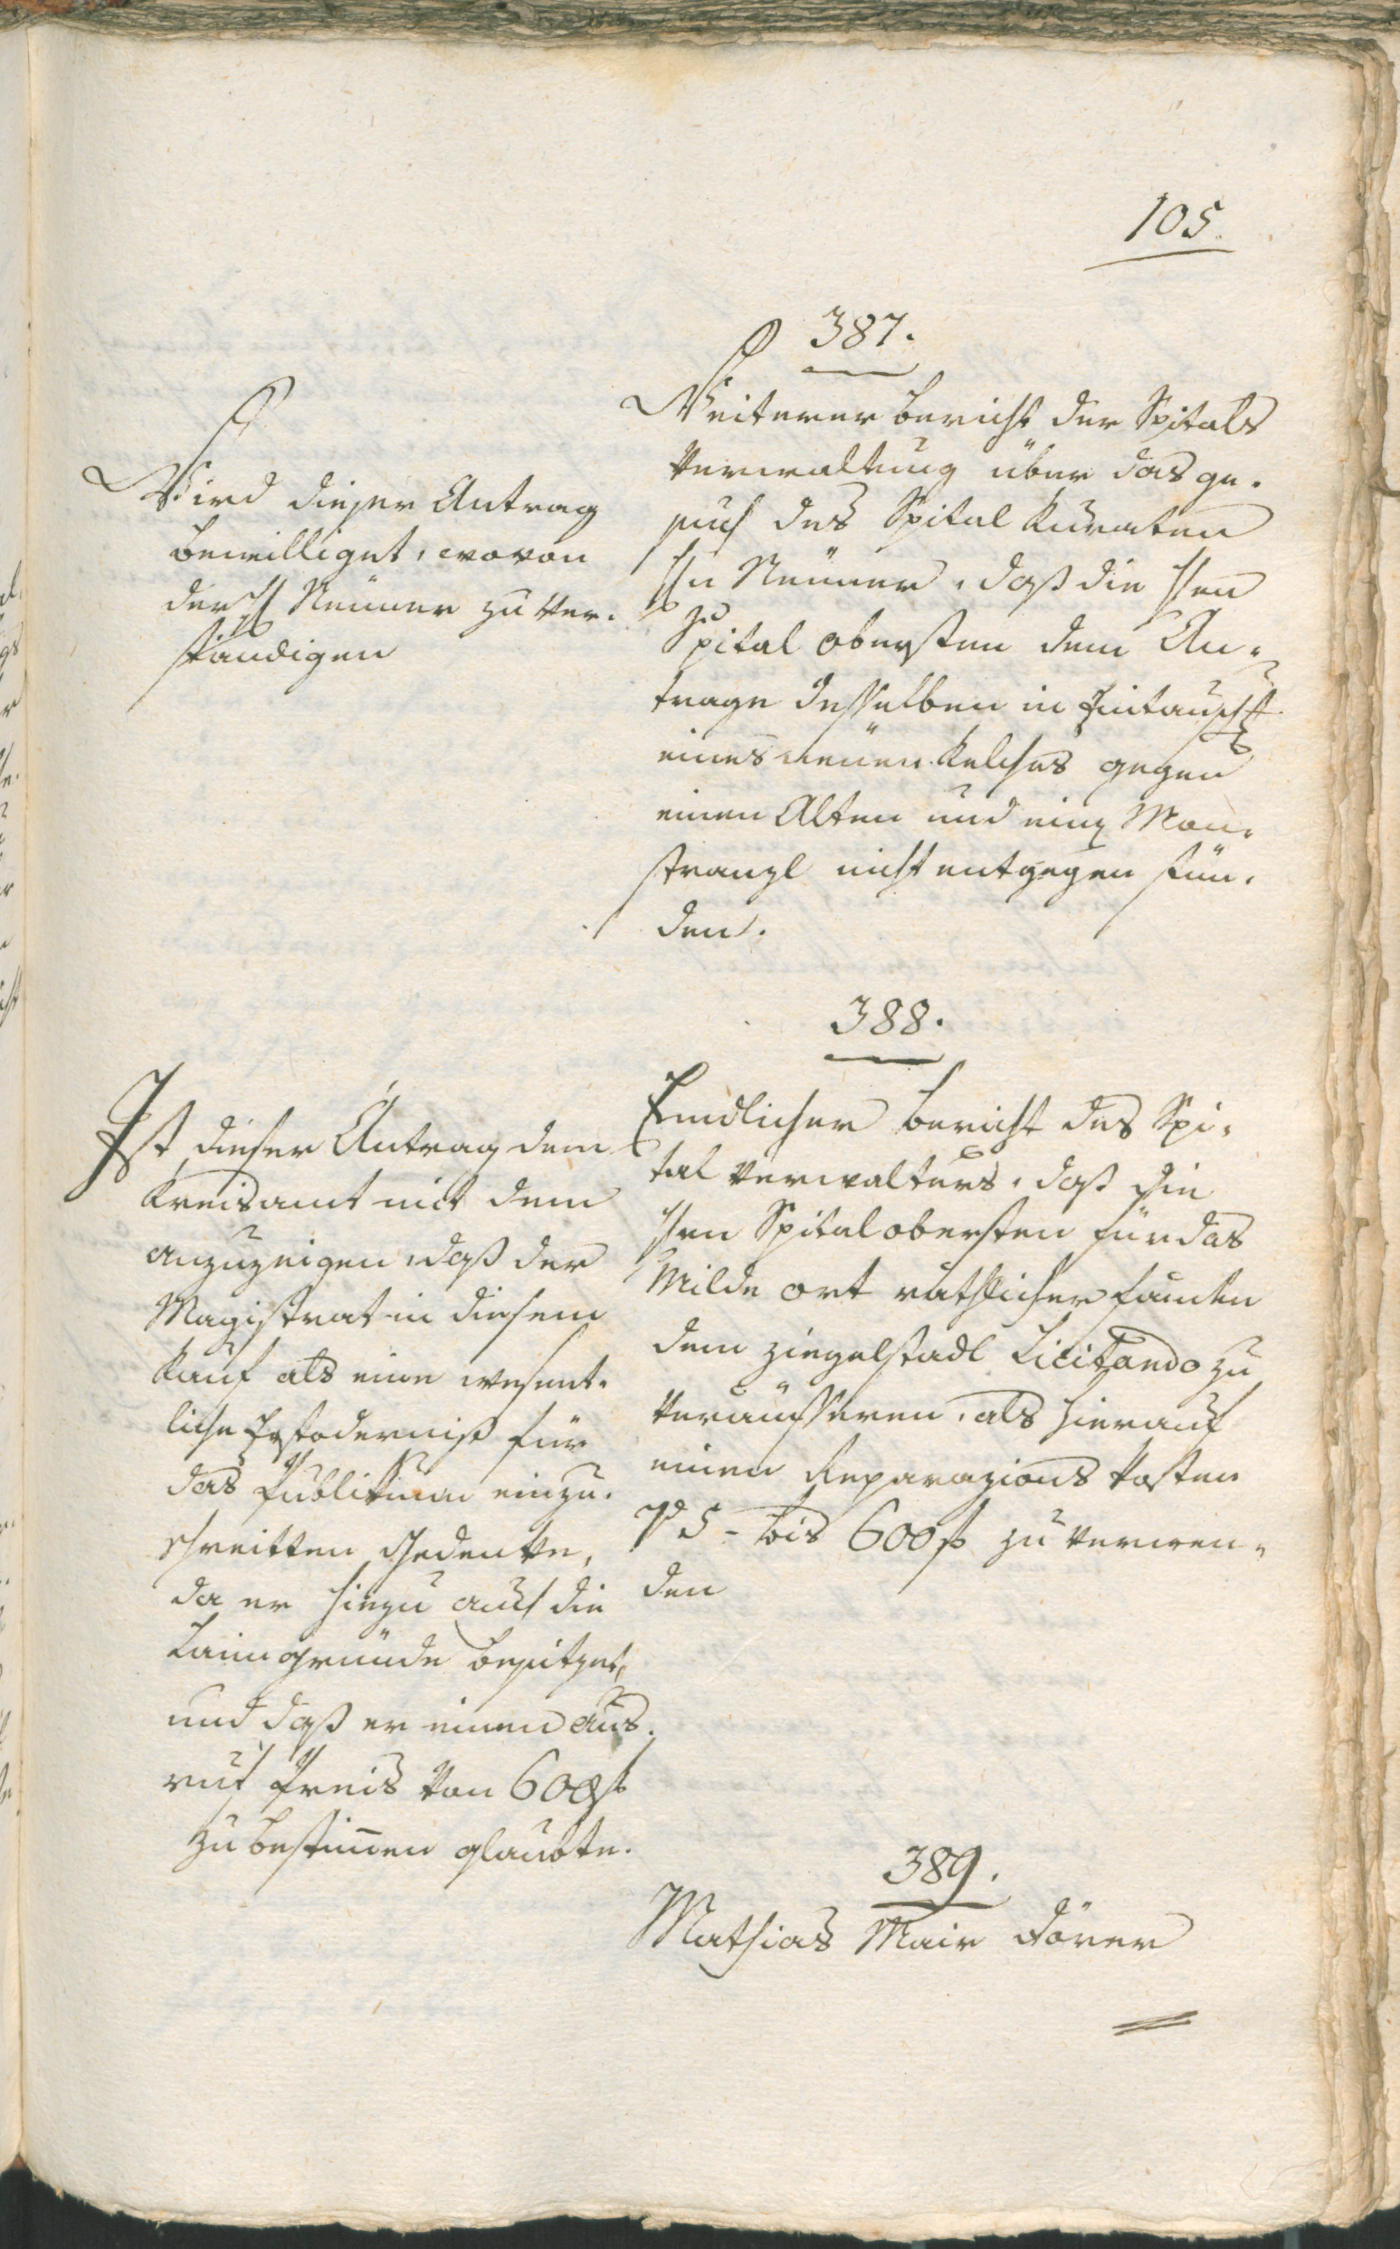 105.
387.
Weiterer bericht der Spitals
Verwaltung über das ge-
such des Spital Kuraten
Hn Neuner, daß die Hen
Spital obersten dem An-
trage desselben in Eintausch
eines neüen Kelches gegen
einen Alten und eine Mon-
stranzl nicht entgegen stün-
den.
Wird dieser Antrag
bewilliget, wovon
der H Neuner zu ver-
ständigen
388.
Endlicher bericht des Spi-
tal verwalters, daß die
Hen Spital obersten für das
Milde ort räthlicher fanden
dem Ziegelstadl Licitando zu
veräusseren, als hierauf
einen Reparazions kosten
Pr 5 - bis 600 f zu verwen-
den
Ist dieser Antrag dem
Kreisamt mit dem
anzuzeigen, daß der
Magistrat in diesem
Kauf als eine wesent-
liche Erfoderniß für
das Publikum einzu-
schreitten gedenke,
da er hiezu auch die
Laimgründe besitzet,
und daß er einen Aus-
ruf Preis von 600 f
zu bestimen glaubte.
389.
Mathias Mair Förer